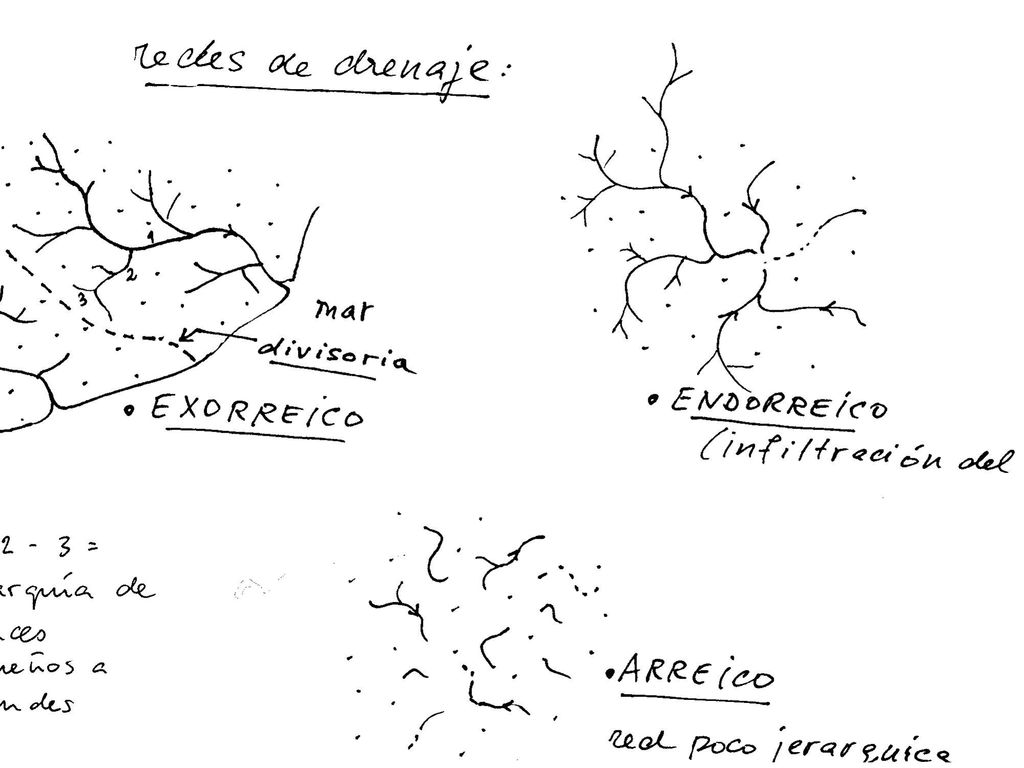 redes de drenaje:
1
2
3
mar
divisoria
• EXORREICO
• ENDORREICO
(infiltración del
2 - 3 =
arquía de
ces
ueños a
ndes
• ARREICO
red poco jerarquica